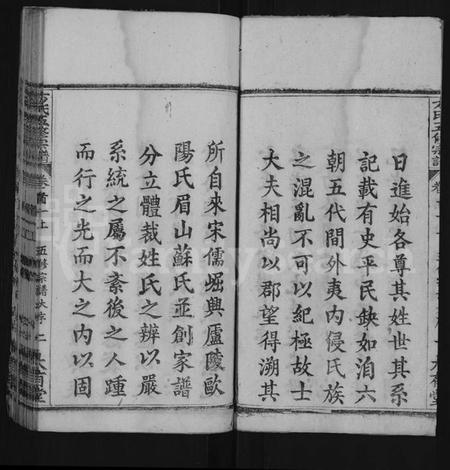 日進始各尊其姓世其系
記載有史平民缺如洎六
朝五代間外夷內侵氏族
之混亂不可以紀極故士
大夫相尚以郡望得溯其
所自來宋儒崛興廬陵歐
陽氏眉山蘇氏並創家譜
分立體裁姓氏之辨以嚴
系統之屬不紊後之人踵
而行之先而大之內以固
方氏五修宗譜 卷首上 五修宗譜大序 二